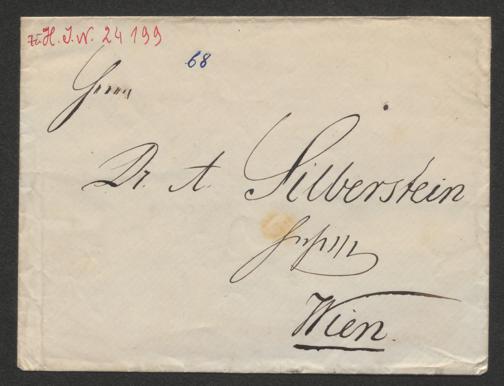 zu H. I. N. 24 199
68
Herrn
Dr. A. Silberstein
Wien.